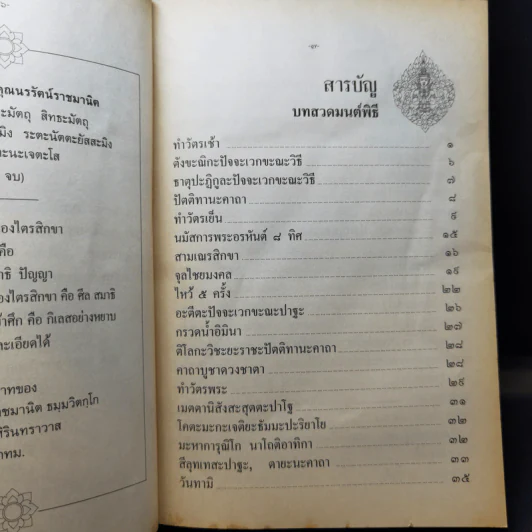 คุณนรรัตน์ราชมานิต
ะมัตถุ สิทธะมัตถุ
ะมิง ระตะนัตตะยัสสะมิง
ะนะเจตะโส
จบ)
องไตรสิกขา
คือ
าธิ ปัญญา
องไตรสิกขา คือ ศีล สมาธิ
้าศึก คือ กิเลสอย่างหยาบ
ะเอียดได้
าทของ
าชมานิต ธมฺมวิตกฺโก
สิรินทราวาส
าทม.
-๑-
สารบัญ
บทสวดมนต์พิธี
ทำวัตรเช้า ๑
ตังขะณิกะปัจจะเวกขะณะวิธี ๖
ธาตุปะฏิกูละปัจจะเวกขะณะวิธี ๗
ปัตติทานะคาถา ๘
ทำวัตรเย็น ๙
นมัสการพระอรหันต์ ๘ ทิศ ๑๕
สามเณรสิกขา ๑๖
จุลไชยมงคล ๑๙
ไหว้ ๕ ครั้ง ๒๒
อะตีตะปัจจะเวกขะณะปาฐะ ๒๖
กรวดน้ำอิมินา ๒๗
ติโลกะวิชะยะราชะปัตติทานะคาถา ๒๘
คาถาบูชาดวงชาตา ๒๘
ทำวัตรพระ ๒๙
เมตตานิสังสะสุตตะปาโฐ ๓๑
โคตะมะกะเจติยะธัมมะปะริยาโย ๓๒
มะหาการุณิโก นาโถติอาทิกา ๓๒
สีลุทเทสะปาฐะ, ตายะนะคาถา ๓๓
วันทามิ ๓๕